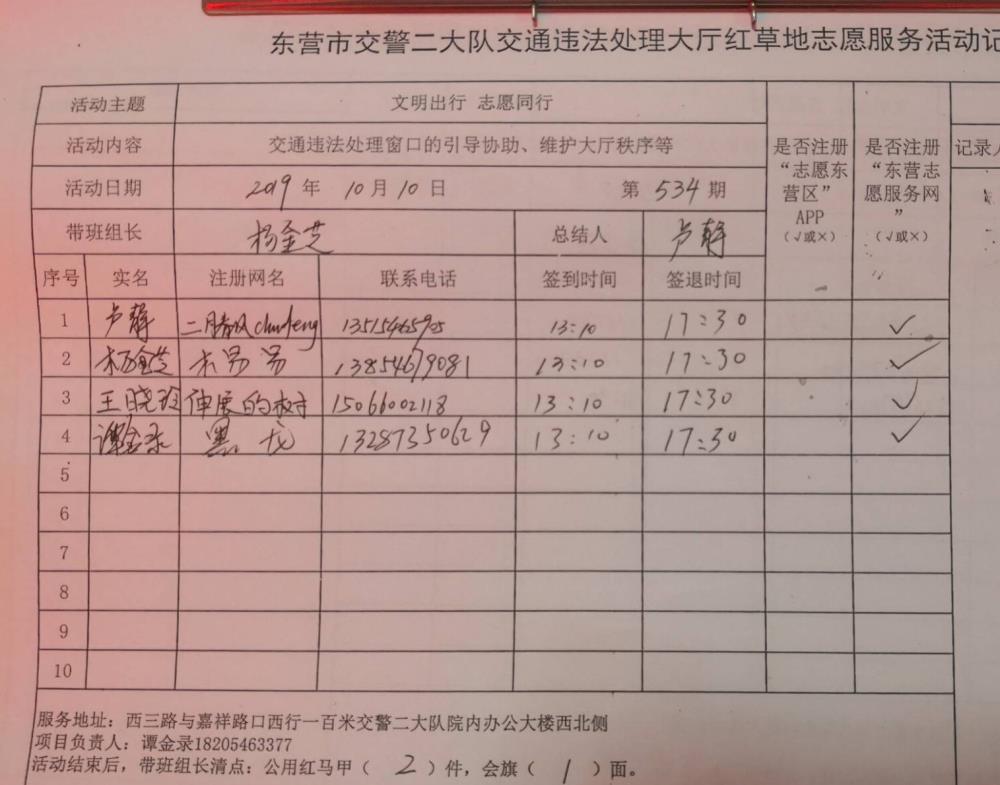 东营市交警二大队交通违法处理大厅红草地志愿服务活动记
活动主题 文明出行 志愿同行
活动内容 交通违法处理窗口的引导协助、维护大厅秩序等
是否注册“志愿东营区”APP（√或×）
是否注册“东营志愿服务网”（√或×）
记录人
活动日期 2019 年 10 月 10 日 第 534 期
带班组长 杨金芝 总结人 卢静
序号 实名 注册网名 联系电话 签到时间 签退时间
1 卢静 二月春风chunfeng 13:10 17:30 ✓
2 杨金芝 木易易 13854679081 13:10 17:30 ✓
3 王晓玲 伸展的树 15066002118 13:10 17:30 ✓
4 谭金录 黑龙 13287350629 13:10 17:30 ✓
5
6
7
8
9
10
服务地址：西三路与嘉祥路口西行一百米交警二大队院内办公大楼西北侧
项目负责人：谭金录18205463377
活动结束后，带班组长清点：公用红马甲（ 2 ）件，会旗（ 1 ）面。